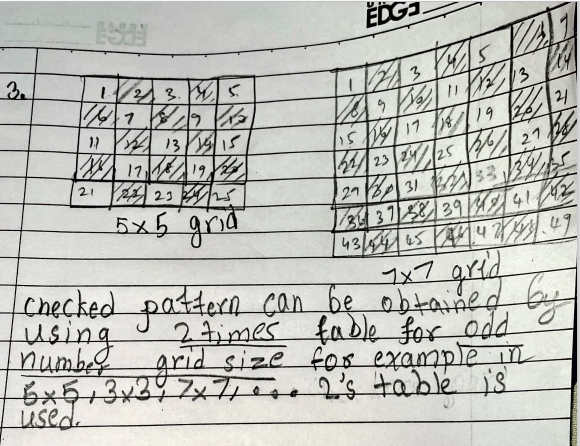 EDGE
3.
1 2 3 4 5
6 7 8 9 10
11 12 13 14 15
16 17 18 19 20
21 22 23 24 25
5x5 grid
1 2 3 4 5 7
8 9 10 11 12 13 14
15 16 17 18 19 20 21
22 23 24 25 26 27
29 30 31 32 33 34 35
36 37 38 39 40 41 42
43 44 45 46 47 48 49
7x7 grid
checked pattern can be obtained by
using 2 times table for odd
number grid size for example in
5x5, 3x3, 7x7, ... 2's table is
used.